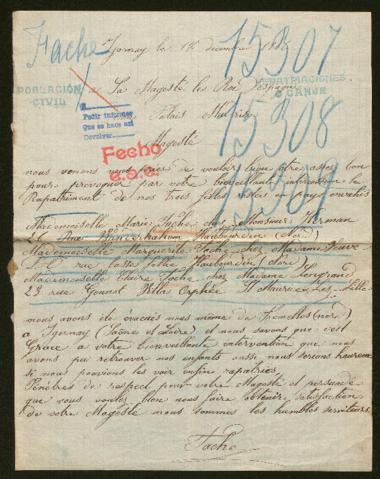 Fache
Igornay le 18 décembre 1916
15307
POBLACIÓN
CIVIL
Sa Majesté le Roi d'Espagne
REPATRIACIONES
O CANJE
Palais Madrid
Pedir informes
Que se hace así
Devolver
15308
Majesté
Fecho
e.s.c.
nous venons vous prier de vouloir bien être assez bon
pour provoquer par votre bienveillante intervention le
Rapatriement de nos trois filles restées en pays envahis
Mademoiselle Marie Fache chez Monsieur Herman
Rue Haubourdin (Nord)
Mademoiselle Marguerite Fache chez Madame Veuve
rue Haubourdin (Nord)
Mademoiselle Claire Fache chez Madame
23 rue Gounod Villas Orphée St Maurice Lez Lille
nous avons été évacués nous même de Fromelles (nord)
à Igornay (Saône et Loire) et nous savons que c'est
Grâce à votre bienveillante intervention que nous
avons pu retrouver nos enfants aussi nous serions heureux
si nous pouvions les voir enfin rapatriés
Pénétrés de respect pour votre Majesté et persuadé
que vous voulez bien nous faire obtenir satisfaction
de votre Magesté nous sommes les humbles serviteurs
Fache